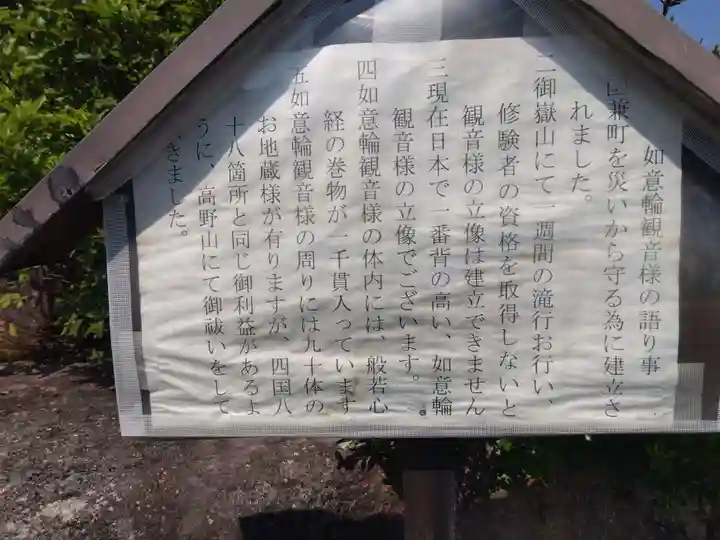 如意輪観音様の語り事
兼町を災いから守る為に建立さ
れました。
二御嶽山にて一週間の滝行お行い、
修験者の資格を取得しないと
観音様の立像は建立できません
三現在日本で一番背の高い、如意輪
観音様の立像でございます。
四如意輪観音様の体内には、般若心
経の巻物が一千貫入っています。
五如意輪観音様の周りには九十体の
お地蔵様が有りますが、四国八
十八箇所と同じ御利益があるよ
うに、高野山にて御祓いをして
きました。